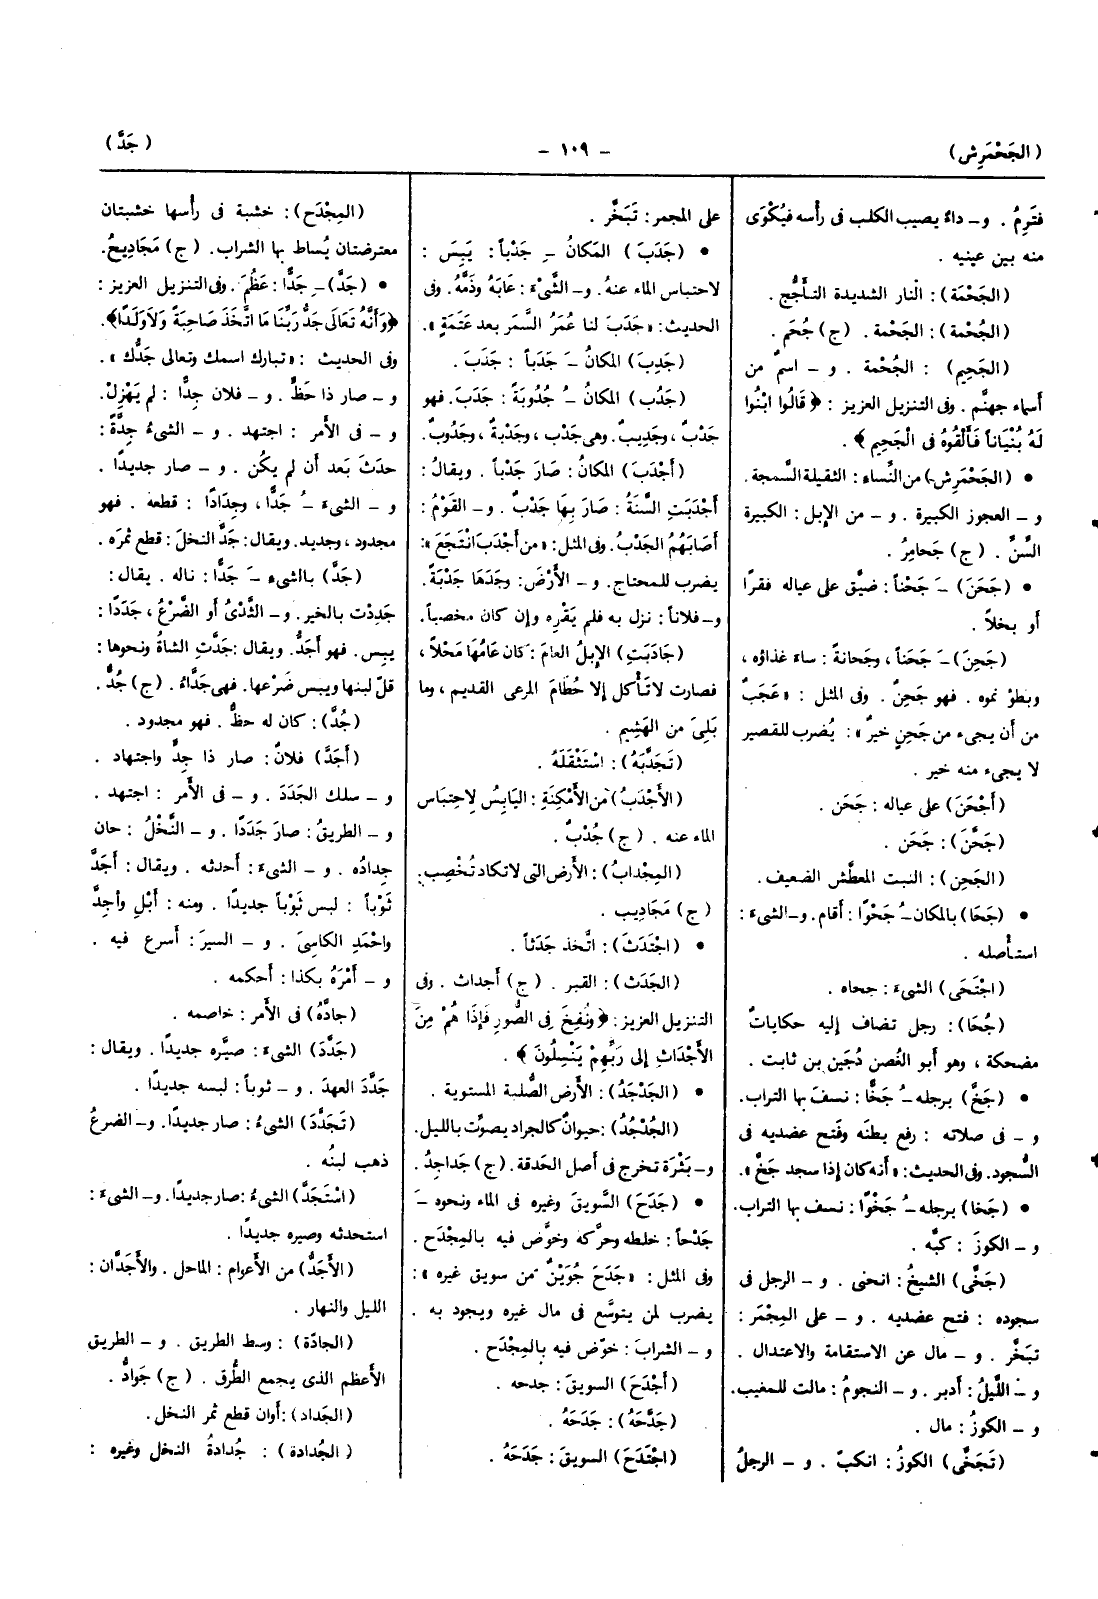 ( الجَحْمَرِش )
- ١٠٩ -
( جَدَّ )
فتَرِمُ . و- داءٌ يصيب الكلب فى رأسه فيُكْوَى
منه بين عينيه .
(الجَحْمَة) : النار الشديدة التأجُّج .
(الجُحْمة) : الجَحْمة . (ج) جُحَم .
(الجَحِيم) : الجُحْمة . و – اسم من
أسماء جهنَّم . وفى التنزيل العزيز : ﴿ قَالُوا ابْنُوا
لَهُ بُنْيَاناً فَأَلْقُوهُ فى الْجَحِيمِ ﴾ .
• (الجَحْمَرِش) من النِّساء : الثقيلة السَّمجة .
و – العجوز الكبيرة . و – من الإبل : الكبيرة
السِّنّ . (ج) جَحامِرُ .
• (جَحَنَ) ـَ جَحْناً : ضيَّق على عياله فقرًا
أو بخلاً .
(جَحِنَ) ـَ جَحَناً ، وجَحانةً : ساءَ غذاؤه ،
وبطؤ نموه . فهو جَحِنٌ . وفى المثل : «عَجَبٌ
من أن يجىء من جَحِنٍ خيرٌ» : يُضرب للقصير
لا يجىء منه خير .
(أجْحَنَ) على عياله : جَحَن .
(جَحَّنَ) : جَحَن .
(الجَحِن) : النبت المعطَّش الضعيف .
• (جَحَا) بالمكان ـُ جَحْوًا : أقام . و- الشىءَ :
استأصله .
(اجْتَحَى) الشىءَ : جحاه .
(جُحَا) : رجل تضاف إليه حكاياتٌ
مضحكة ، وهو أبو الغُصن دُجَين بن ثابت .
• (جَخَّ) برجله ـُ جَخًّا : نسفَ بها التراب .
و – فى صلاته : رفع بطنَه وفَتح عضديه فى
السُّجود . وفى الحديث : «أنه كان إذا سجد جَخَّ» .
• (جَخا) برجله ـُ جَخْوًا : نسف بها التراب .
و – الكوزَ : كبَّه .
(جَخَّى) الشيخُ : انحنى . و – الرجل فى
سجوده : فتح عضديه . و – على المِجْمَر :
تبخَّر . و – مال عن الاستقامة والاعتدال .
و – اللَّيلُ : أدبر . و – النجومُ : مالت للمغيب .
و – الكوزُ : مال .
(تَجَخَّى) الكوزُ : انكبّ . و – الرجلُ
على المجمر : تَبَخَّر .
• (جَدَبَ) المَكانُ ـِ جَدْباً : يَبِسَ :
لاحتباس الماء عنهُ . و- الشَّىْءَ : عَابَهُ وذَمَّهُ . وفى
الحديث : «جَدَبَ لنا عُمَرُ السَّمَر بعد عَتَمَةٍ» .
(جَدِبَ) المكانُ ـَ جَدَباً : جَدَبَ .
(جَدُبَ) المكانُ ـُ جُدُوبَةً : جَدَبَ . فهو
جَدْبٌ ، وجَدِيبٌ . وهى جَدْب ، وجَدْبةٌ ، وجَدُوبٌ .
(أَجْدَبَ) المكانُ : صَارَ جَدْباً . ويقالُ :
أجْدَبَتِ السَّنَةُ : صَارَ بِهَا جَدْبٌ . و- القَوْمُ :
أصَابَهُمُ الجَدْبُ . وفى المثل : «من أجْدَبَ انْتَجَعَ» :
يضرب للمحتاج . و – الأرْضَ : وجَدَهَا جَدْبَةً .
و- فلاناً : نزل به فلم يَقْرِهِ وإن كان مخصباً .
(جَادَبَتِ) الإبلُ العامَ : كان عَامُهَا مَحْلاً ،
فصارت لا تَأْكل إلا حُطَامَ المرعى القديم ، وما
بَلِىَ من الهَشِيم .
(تَجَدَّبَهُ) : اسْتَثْقَلَهُ .
(الأجْدَبُ) من الأمْكِنَةِ : اليَابِسُ لِاحتِبَاس
الماء عنه . (ج) جُدْبٌ .
(المِجْدابُ) : الأرضِ التى لا تكاد تُخْصِب .
(ج) مَجَادِيب .
• (اجْتَدَثَ) : اتَّخذ جَدَثاً .
(الجَدَث) : القبر . (ج) أجداث . وفى
التنزيل العزيز : ﴿ وَنُفِخَ فِى الصُّورِ فَإذَا هُمْ مِنَ
الأجْدَاثِ إلى رَبِّهِمْ يَنْسِلُونَ ﴾ .
• (الجَدْجَدُ) : الأرض الصُّلبة المستوية .
(الجُدْجُدُ) : حيوانٌ كالجراد يصوِّت بالليل .
و- بَثْرَة تخرج فى أصل الحَدقة . (ج) جَداجِدُ .
• (جَدَحَ) السَّويقَ وغيره فى الماء ونحود ـَ
جَدْحاً : خلطه وحركَّه وخوَّض فيه بالمِجْدَح .
وفى المثل : «جَدَحَ جُوَيْنٌ من سويق غيره» :
يضرب لمن يتوسَّع فى مال غيره ويجود به .
و – الشراب : خوّض فيه بالمِجْدَح .
(أجْدَحَ) السويقَ : جدحه .
(جَدَّحَهُ) : جَدَحَهُ .
(اجْتَدَحَ) السويقَ : جَدَحَهُ .
(المِجْدَح) : خشبة فى رأسها خشبتان
معترضتان يُساط بها الشراب . (ج) مَجَادِيحُ .
• (جَدَّ) ـِ جَدًّا : عَظُمَ . وفى التنزيل العزيز :
﴿وَأَنَّهُ تَعَالَى جَدُّ رَبِّنَا مَا اتَّخَذَ صَاحِبَةً وَلاَ وَلَدًا﴾ .
وفى الحديث : «تبارك اسمك وتعالى جَدُّك» .
و – صار ذا حَظٍّ . و – فلان جِدًّا : لم يَهْزِلْ .
و – فى الأَمر : اجتهد . و – الشىءُ جِدَّةً :
حدَثَ بَعد أن لم يكُن . و – صار جديدًا .
و – الشىءَ ـُ جَدًّا ، وجدَادًا : قطعه . فهو
مجدود ، وجديد . ويقال : جَدَّ النخلَ : قطع ثمرَه .
(جَدَّ) بالشىءِ ـَ جَدًّا : ناله . يقال :
جَدِدْت بالخير . و – الثَّدْىُ أو الضَّرْعُ ، جَدَدًا :
يبس . فهو أجَدُّ . ويقال : جَدَّتِ الشاةُ ونحوها :
قلَّ لبنها ويبس ضَرْعها . فهى جَدَّاءُ . (ج) جُدٌّ .
(جُدَّ) : كان له حظٌّ . فهو مجدود .
(أجَدَّ) فلانٌ : صار ذا جِدٍّ واجتهاد .
و – سلك الجَدَدَ . و – فى الأَمر : اجتهد .
و – الطريقُ : صارَ جَدَدًا . و – النَّخْلُ : حان
جِدادُه . و – الشىءَ : أحدثه . ويقال : أجَدَّ
ثَوْباً : لبس ثَوْباً جديدًا . ومنه : أبْلِ وأجِدَّ
واحْمَدِ الكاسِىَ . و – السيرَ : أسرع فيه .
و – أمْرَهُ بكذا : أحكمه .
(جادَّهُ) فى الأَمر : خاصمه .
(جَدَّدَ) الشىءَ : صيَّره جديدًا . ويقال :
جَدَّدَ العهدَ . و – ثوباً : لبسه جديدًا .
(تَجَدَّدَ) الشىءُ : صار جديدًا . و- الضرعُ
ذهب لبنُه .
(اسْتَجَدَّ) الشىءُ : صار جديدًا . و- الشىءَ :
استحدثه وصيره جديدًا .
(الأجَدُّ) من الأَعوام : الماحل . والأَجَدَّان :
الليل والنهار .
(الجادّة) : وسط الطريق . و – الطريق
الأعظم الذى يجمع الطُّرق . (ج) جَوادُّ .
(الجَداد) : أوان قطع ثمر النخل .
(الجُدادة) : جُدادةُ النخل وغيره :